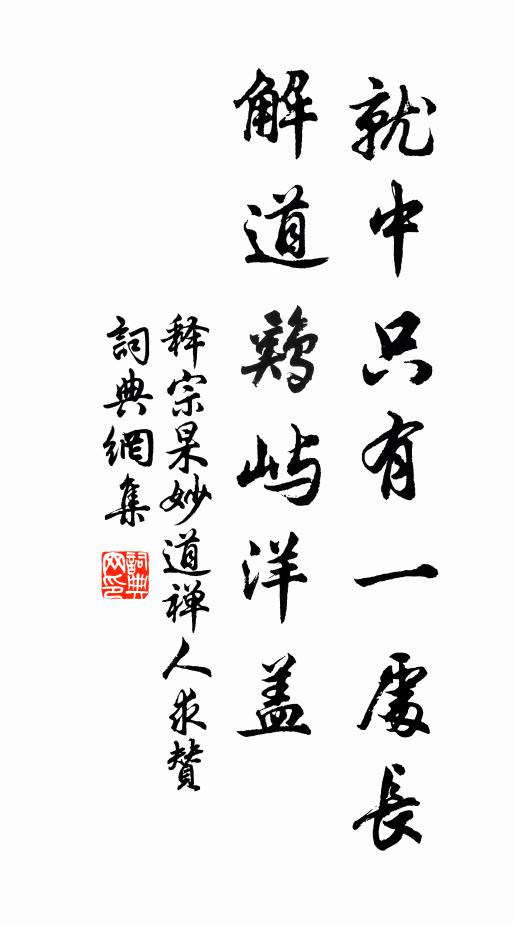 就中只有一處長
解道鷄屿洋盖
释宗杲妙道禅人求贊
詞典網集
詞典网印